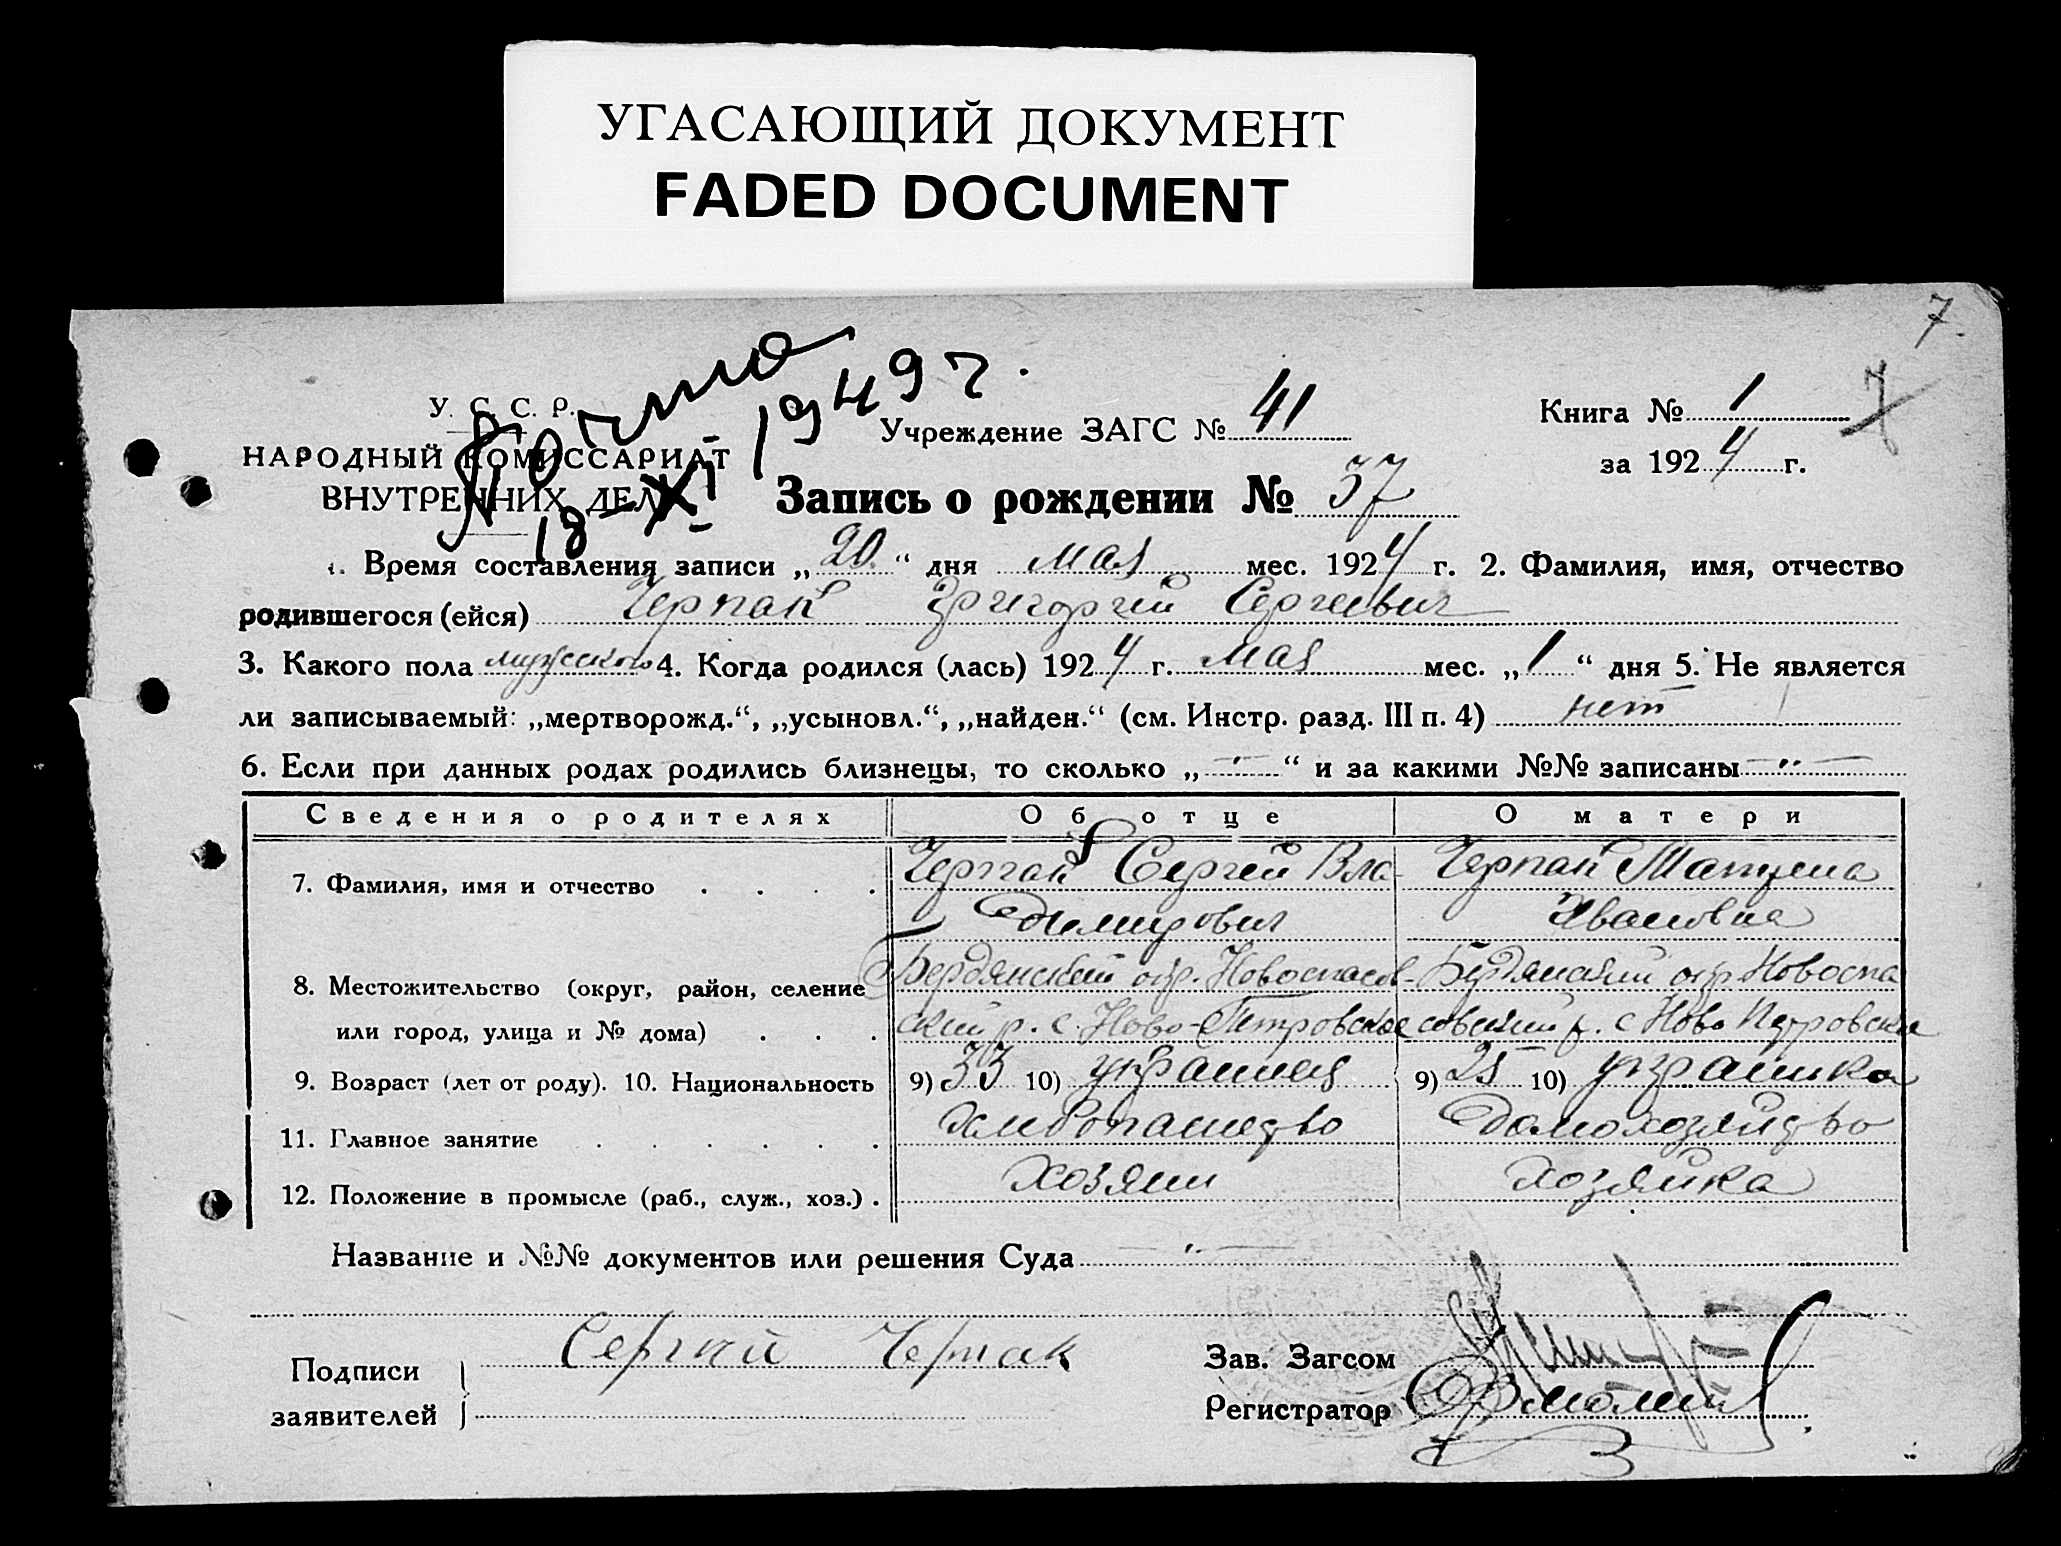 УГАСАЮЩИЙ ДОКУМЕНТ
FADED DOCUMENT
7.
7
У. С. С. Р.
НАРОДНЫЙ КОМИССАРИАТ
ВНУТРЕННИХ ДЕЛ
18-XI 1949 г.
Учреждение ЗАГС № 41
Книга № 1
за 1924 г.
Запись о рождении № 37
1. Время составления записи „20.“ дня мая мес. 1924 г. 2. Фамилия, имя, отчество
родившегося (ейся) Черпак Григорий Сергеевич
3. Какого пола мужского 4. Когда родился (лась) 1924 г. мая мес. „1“ дня 5. Не является
ли записываемый: „мертворожд.“, „усыновл.“, „найден.“ (см. Инстр. разд. III п. 4) нет
6. Если при данных родах родились близнецы, то сколько „-“-“ и за какими №№ записаны -“-
Сведения о родителях Об отце О матери
7. Фамилия, имя и отчество Черпак Сергей Вла- Черпак
димирович Ивановна
8. Местожительство (округ, район, селение Бердянский окр. Новоспасов- Бердянский окр Новоспа
или город, улица и № дома) ский р. с. Ново-Петровское совский р. с Ново Петровское
9. Возраст (лет от роду). 10. Национальность 9) 33 10) 9) 25 10) украинка
11. Главное занятие Хлебопашество Домохозяйство
12. Положение в промысле (раб., служ., хоз.) хозяин хозяйка
Название и №№ документов или решения Суда -“-
Подписи заявителей Сергий Черпак
Зав. Загсом
Регистратор